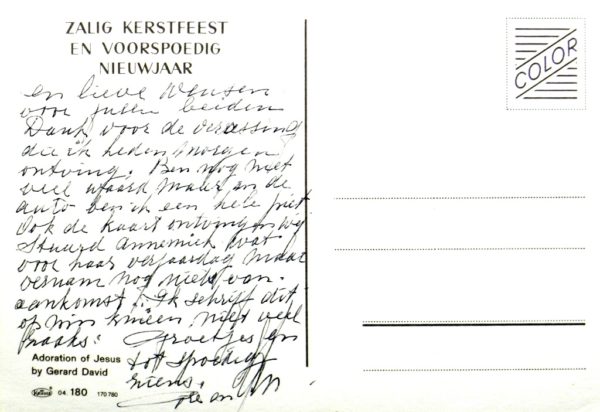 ZALIG KERSTFEEST
EN VOORSPOEDIG
NIEUWJAAR
COLOR
en lieve wensen
voor jullen beiden
Dank voor de verassing
die ik heden morgen
ontving. Ben nog niet
veel waard maar in de
auto ben ik een hele piet
Ook de kaart ontvingen wy
Stuurd Annemiek wat
voor haar verjaardag maar
vernam nog niets van
aankomst! Ik schrijf dit
op mijn knieën niet veel
zaaks! Groetjes en
tot spoedig
ziens.
Adoration of Jesus
by Gerard David
04. 180 170 780